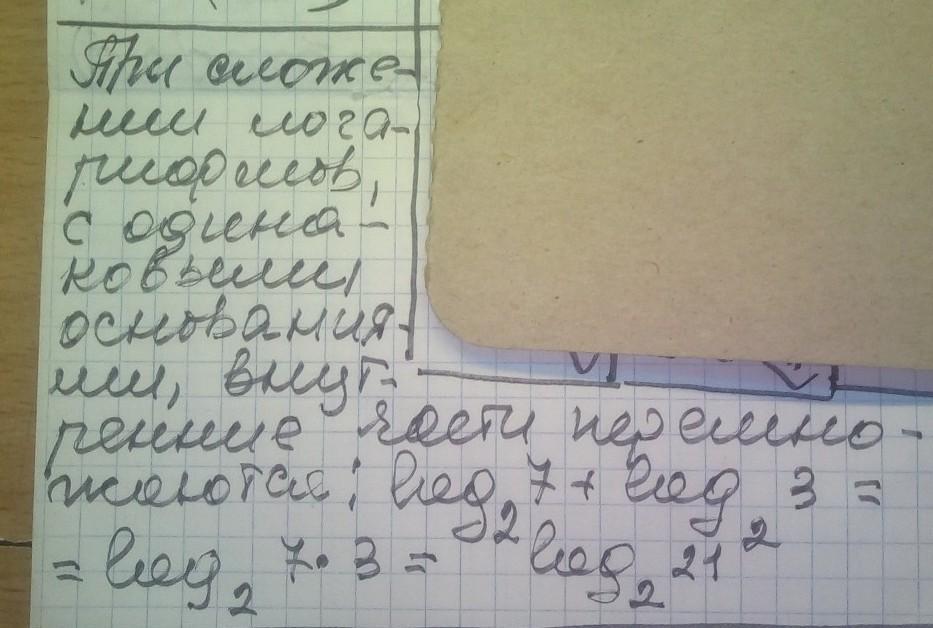 При сложе-
нии лога-
рифмов,
с одина-
ковыми
основания-
ми, внут-
ренние части перемно-
жаются: log₂ 7 + log₂ 3 =
= log₂ 7 · 3 = log₂ 21